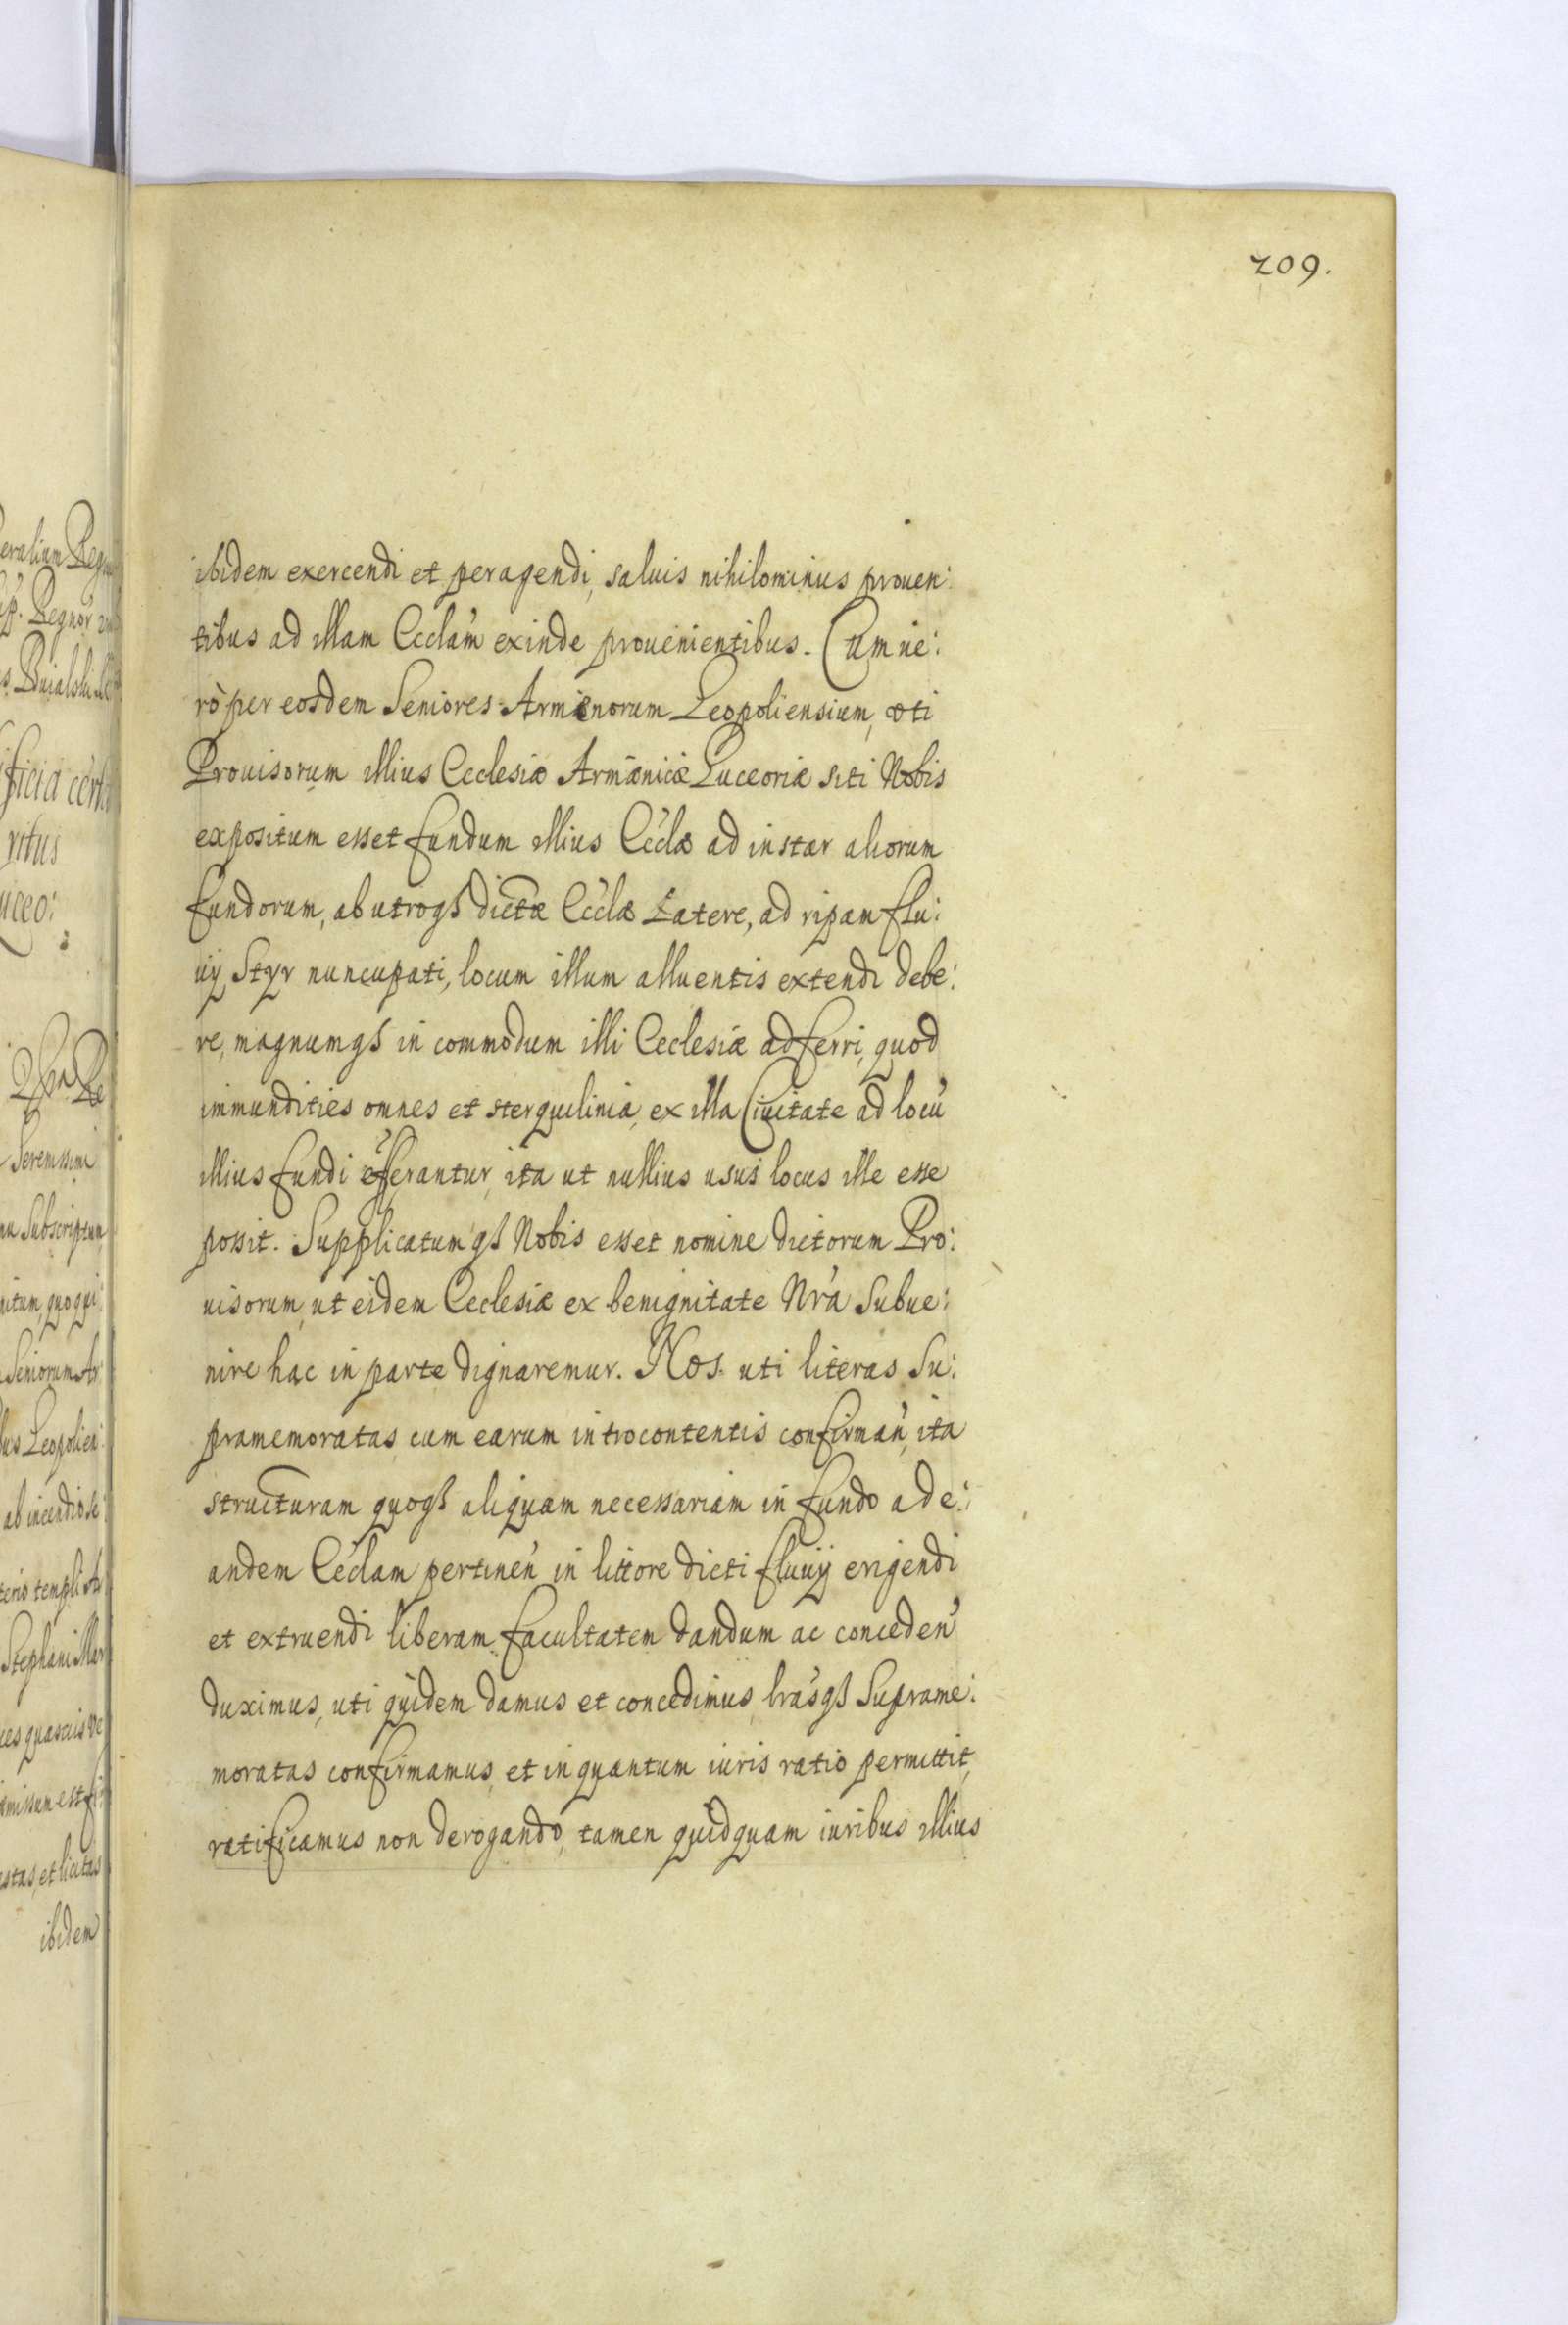 209.
ibidem exercendi et peragendi, saluis nihilominus prouen:
tibus ad illam Ecclam exinde prouenientibus. Cum ue:
rò per eosdem Seniores Armenorum Leopoliensium, uti
Prouisorum illius Ecclesiæ Armænicæ Luceoriæ siti Nobis
expositum esset fundum illius Ecclæ ad instar aliorum
fundorum, ab utroqȝ dictæ Ecclæ Latere, ad ripam flu:
uij Styr nuncupati, locum illum alluentis extendi debe:
re, magnumqȝ in commodum illi Ecclesiæ adferri, quod
immundities omnes et sterquilinia, ex illa Ciuitate ad locu
illius fundi efferantur, ita ut nullius usus locus ille esse
possit. Supplicatumqȝ Nobis esset nomine dictorum Pro:
uisorum, ut eidem Ecclesiæ ex benignitate Nra Subue:
nire hac in parte dignaremur. Nos. uti literas Su:
pramemoratas, cum earum introcontentis confirman, ita
structuram quoqȝ aliquam necessariam in fundo ad e:
andem Ecclam pertinen in littore dicti fluuij erigendi
et extruendi liberam facultatem dandum ac conceden
duximus, uti quidem damus et concedimus, lrasqȝ Suprame:
moratas confirmamus, et in quantum iuris ratio permittit,
ratificamus non derogando, tamen quidquam iuribus illius
ritus
ibidem